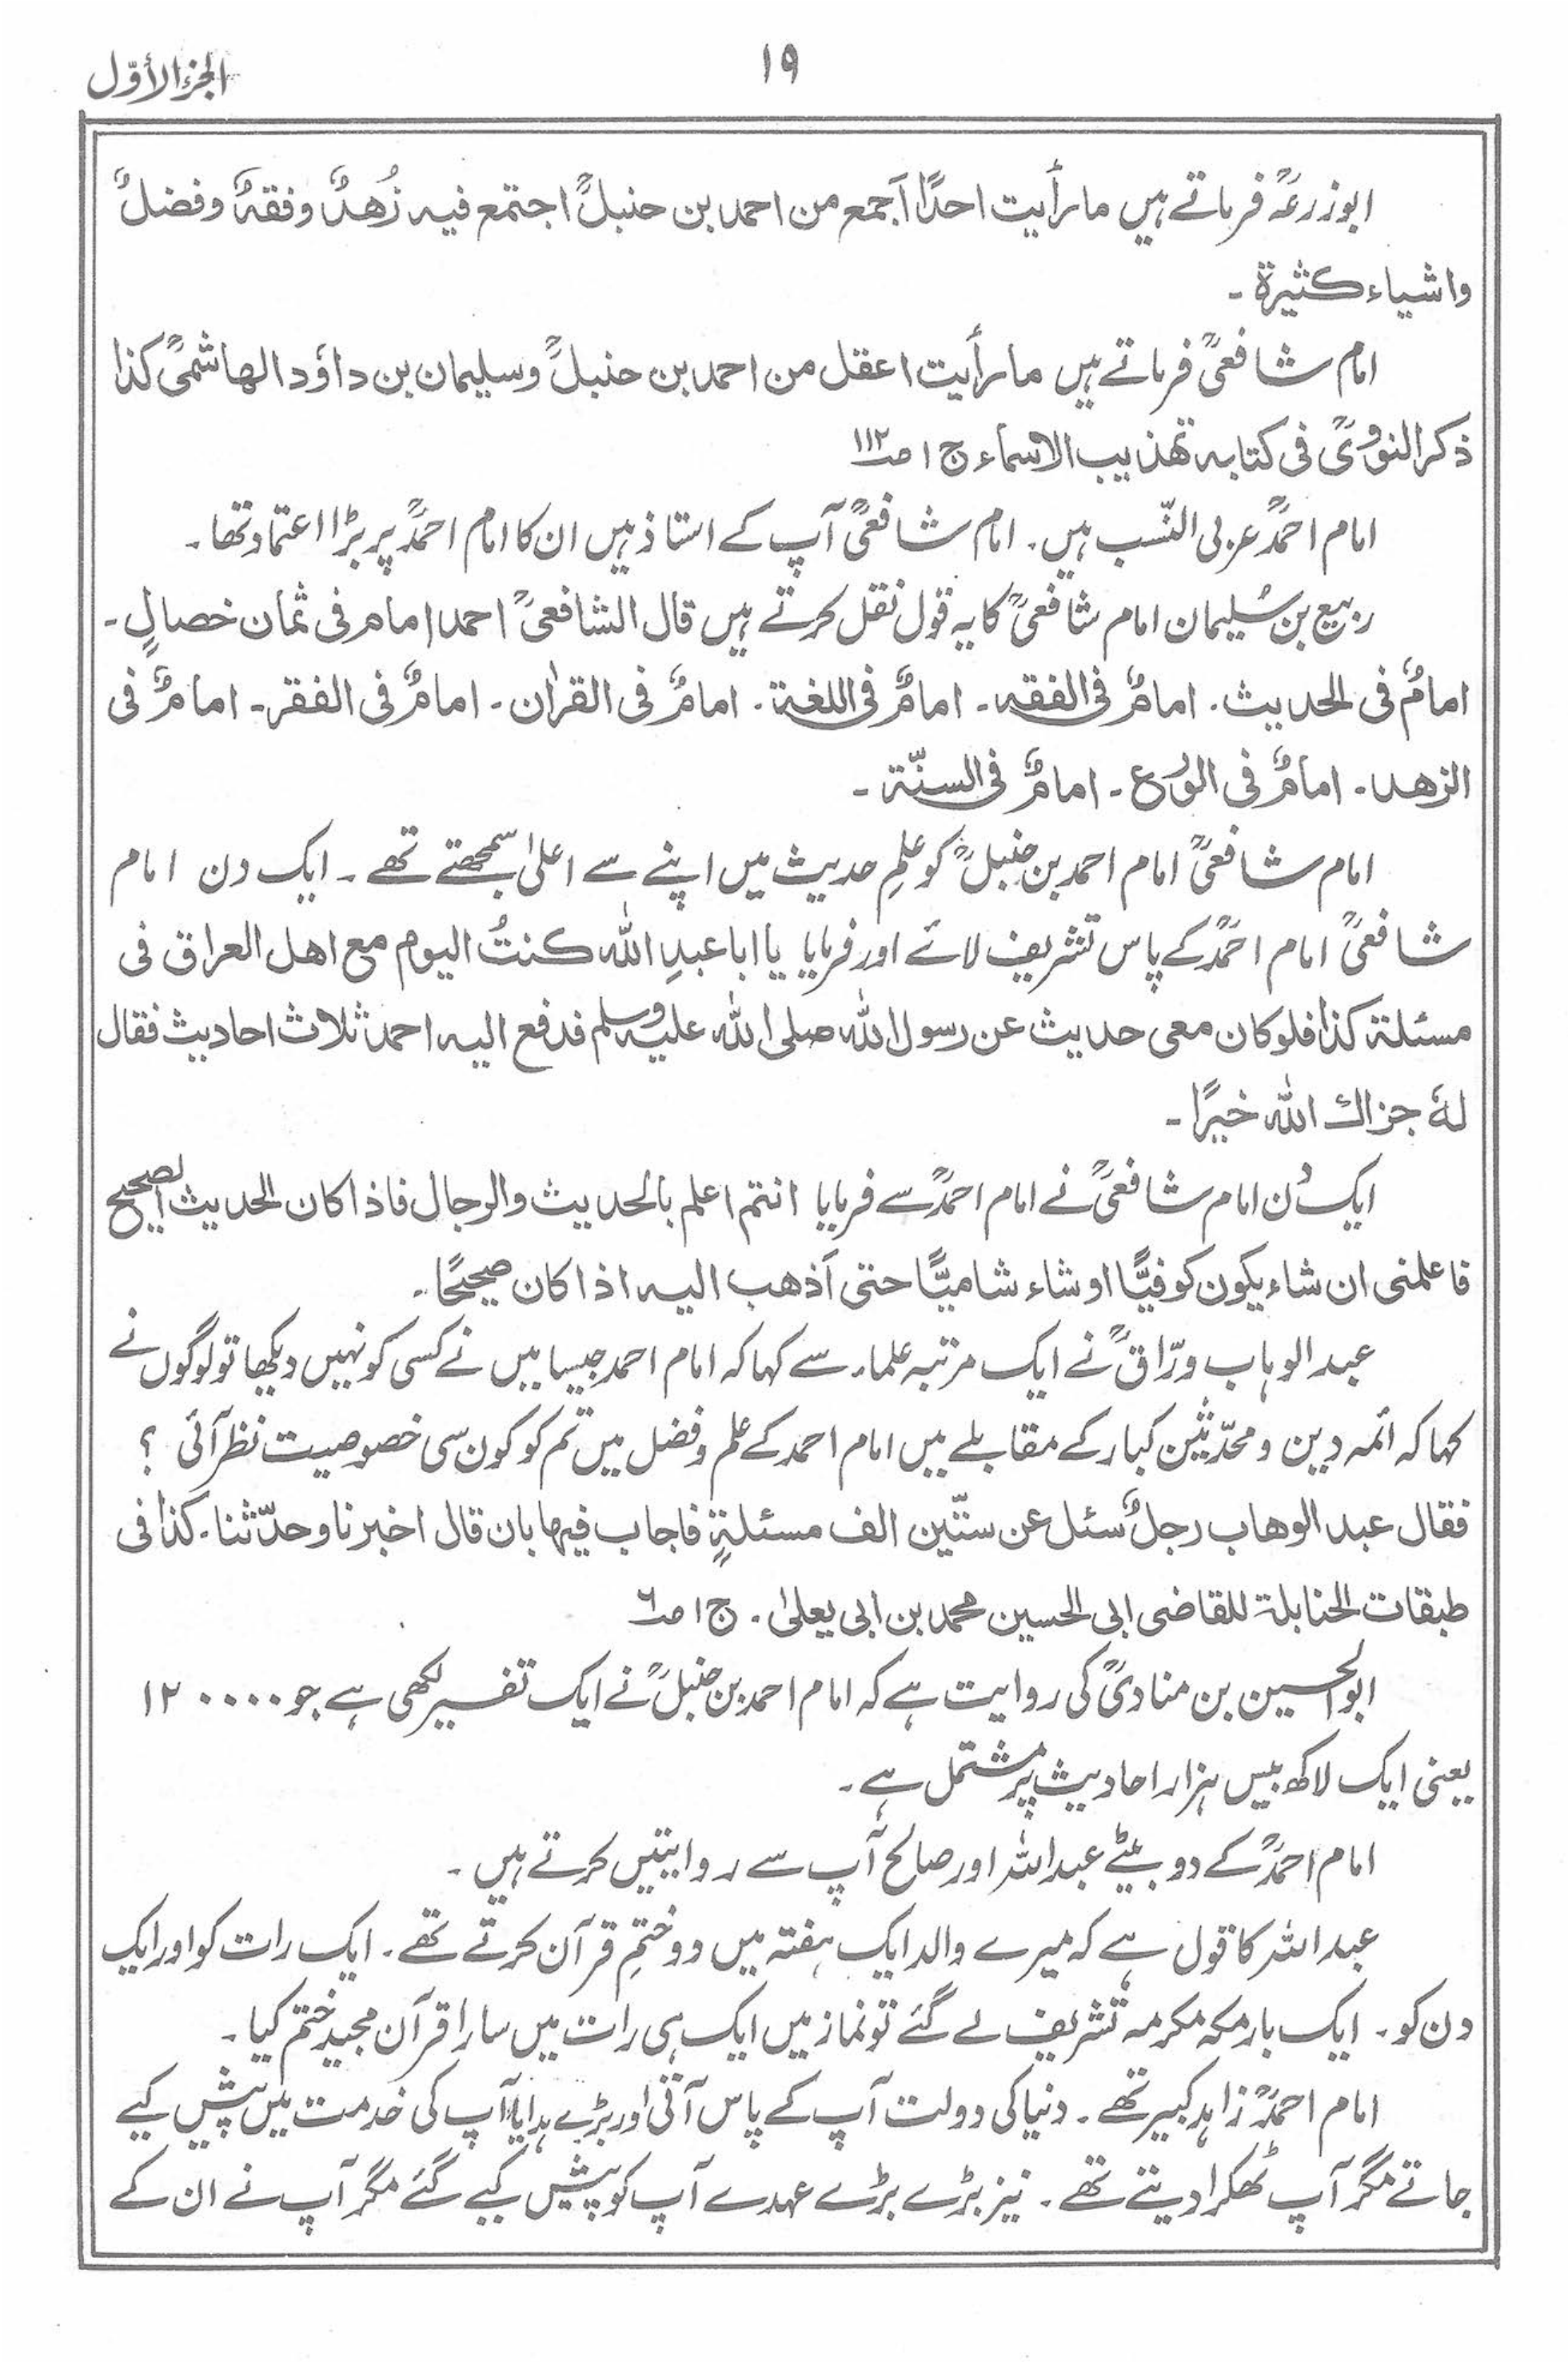 الجزء الأوّل
١٩
ابوزرعہؒ فرماتے ہیں ما رأیت احدًا اَجمع من احمد بن حنبلؒ اجتمع فیہ زُھدٌ وفقہٌ وفضلٌ
واشیاء کثیرۃ ۔
امام شافعیؒ فرماتے ہیں ما رأیت اعقل من احمد بن حنبلؒ وسلیمان بن داوٗد الھاشمیؒ کذا
ذکر النوویؒ فی کتابہ تھذیب الاسماء ج ۱ ص۱۱۲
امام احمدؒ عربی النّسب ہیں ۔ امام شافعیؒ آپ کے استاذ ہیں ان کا امام احمدؒ پر بڑا اعتماد تھا ۔
ربیع بن سُلیمان امام شافعیؒ کا یہ قول نقل کرتے ہیں قال الشافعیؒ احمد امام فی ثمان خصالٍ ۔
امامٌ فی الحدیث ۔ امامٌ فی الفقہ ۔ امامٌ فی اللغۃ ۔ امامٌ فی القراٰن ۔ امامٌ فی الفقر ۔ امامٌ فی
الزھد ۔ امامٌ فی الورع ۔ امامٌ فی السنّۃ ۔
امام شافعیؒ امام احمد بن حنبلؒ کو علمِ حدیث میں اپنے سے اعلیٰ سمجھتے تھے ۔ ایک دن امام
شافعیؒ امام احمدؒ کے پاس تشریف لائے اور فرمایا یا ابا عبدِ اللہ کنتُ الیوم مع اھل العراق فی
مسئلۃ کذا فلو کان معی حدیث عن رسول اللہ صلی اللہ علیہ وسلم فدفع الیہ احمد ثلاث احادیث فقال
لہٗ جزاك اللہ خیرًا ۔
ایک دن امام شافعیؒ نے امام احمدؒ سے فرمایا انتم اعلم بالحدیث والرجال فاذا کان الحدیث الصحیح
فاعلمنی ان شاء یکون کوفیًّا او شاء شامیًّا حتی اَذھب الیہ اذا کان صحیحًا ۔
عبد الوہاب ورّاقؒ نے ایک مرتبہ علماء سے کہا کہ امام احمد جیسا میں نے کسی کو نہیں دیکھا تو لوگوں نے
کہا کہ ائمہ دین و محدّثین کبار کے مقابلے میں امام احمد کے علم و فضل میں تم کو کون سی خصوصیت نظر آئی ؟
فقال عبد الوھاب رجلٌ سئل عن ستّین الف مسئلۃٍ فاجاب فیھا بان قال اخبرنا وحدّثنا ۔ کذا فی
طبقات الحنابلۃ للقاضی ابی الحسین محمد بن ابی یعلیٰ ۔ ج ۱ ص۶
ابوالحسین بن منادیؒ کی روایت ہے کہ امام احمد بن حنبلؒ نے ایک تفسیر لکھی ہے جو ۱۲۰۰۰۰
یعنی ایک لاکھ بیس ہزار احادیث پر مشتمل ہے ۔
امام احمدؒ کے دو بیٹے عبداللہ اور صالح آپ سے روایتیں کرتے ہیں ۔
عبداللہ کا قول ہے کہ میرے والد ایک ہفتہ میں دو ختمِ قرآن کرتے تھے ۔ ایک رات کو اور ایک
دن کو ۔ ایک بار مکہ مکرمہ تشریف لے گئے تو نماز میں ایک ہی رات میں سارا قرآن مجید ختم کیا ۔
امام احمدؒ زاہد کبیر تھے ۔ دنیا کی دولت آپ کے پاس آتی اور بڑے ہدایا آپ کی خدمت میں پیش کیے
جاتے مگر آپ ٹھکرا دیتے تھے ۔ نیز بڑے بڑے عہدے آپ کو پیش کیے گئے مگر آپ نے ان کے